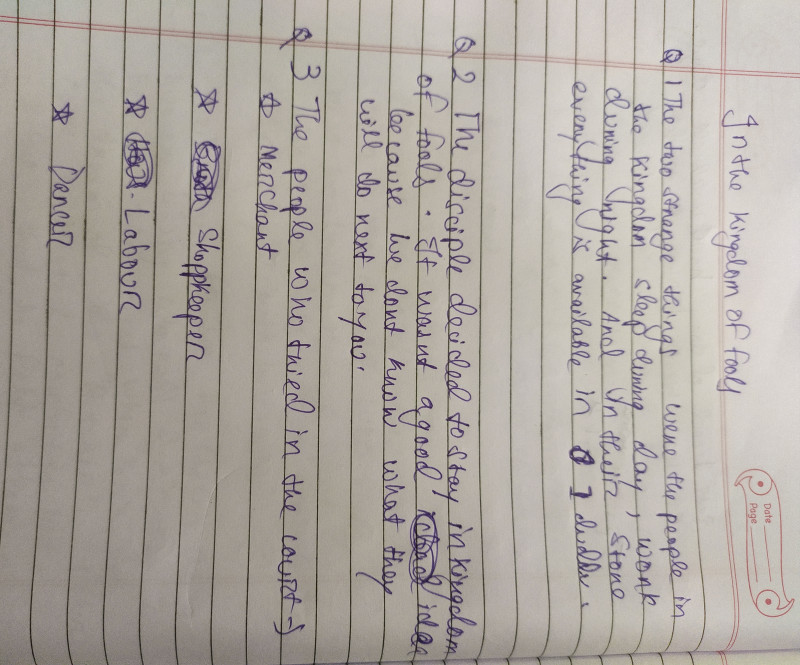 Date
Page
In the Kingdom of fools
Q 1 The two strange things were the people in
the kingdom sleep during day, work
during night. And In their store
everything is available in 1 duddu.
Q 2 The disciple decided to stay in kingdom
of fools. It wasnt a good idea
because we dont know what they
will do next to you.
Q 3 The people who tried in the court →
☆ Merchant
☆ Shoppkeeper
☆ Labour
☆ Dancer